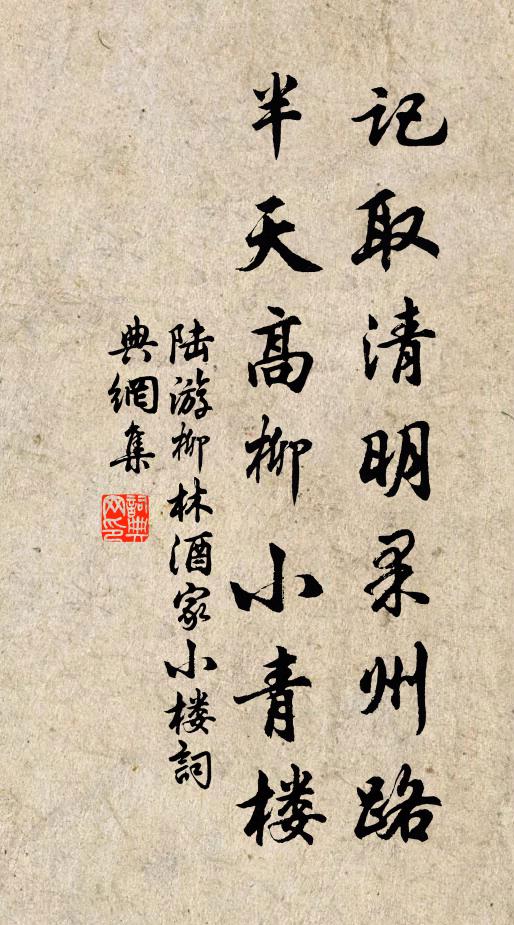 记取清明果州路
半天高柳小青楼
陆游柳林酒家小楼詞
典網集
詞典网印